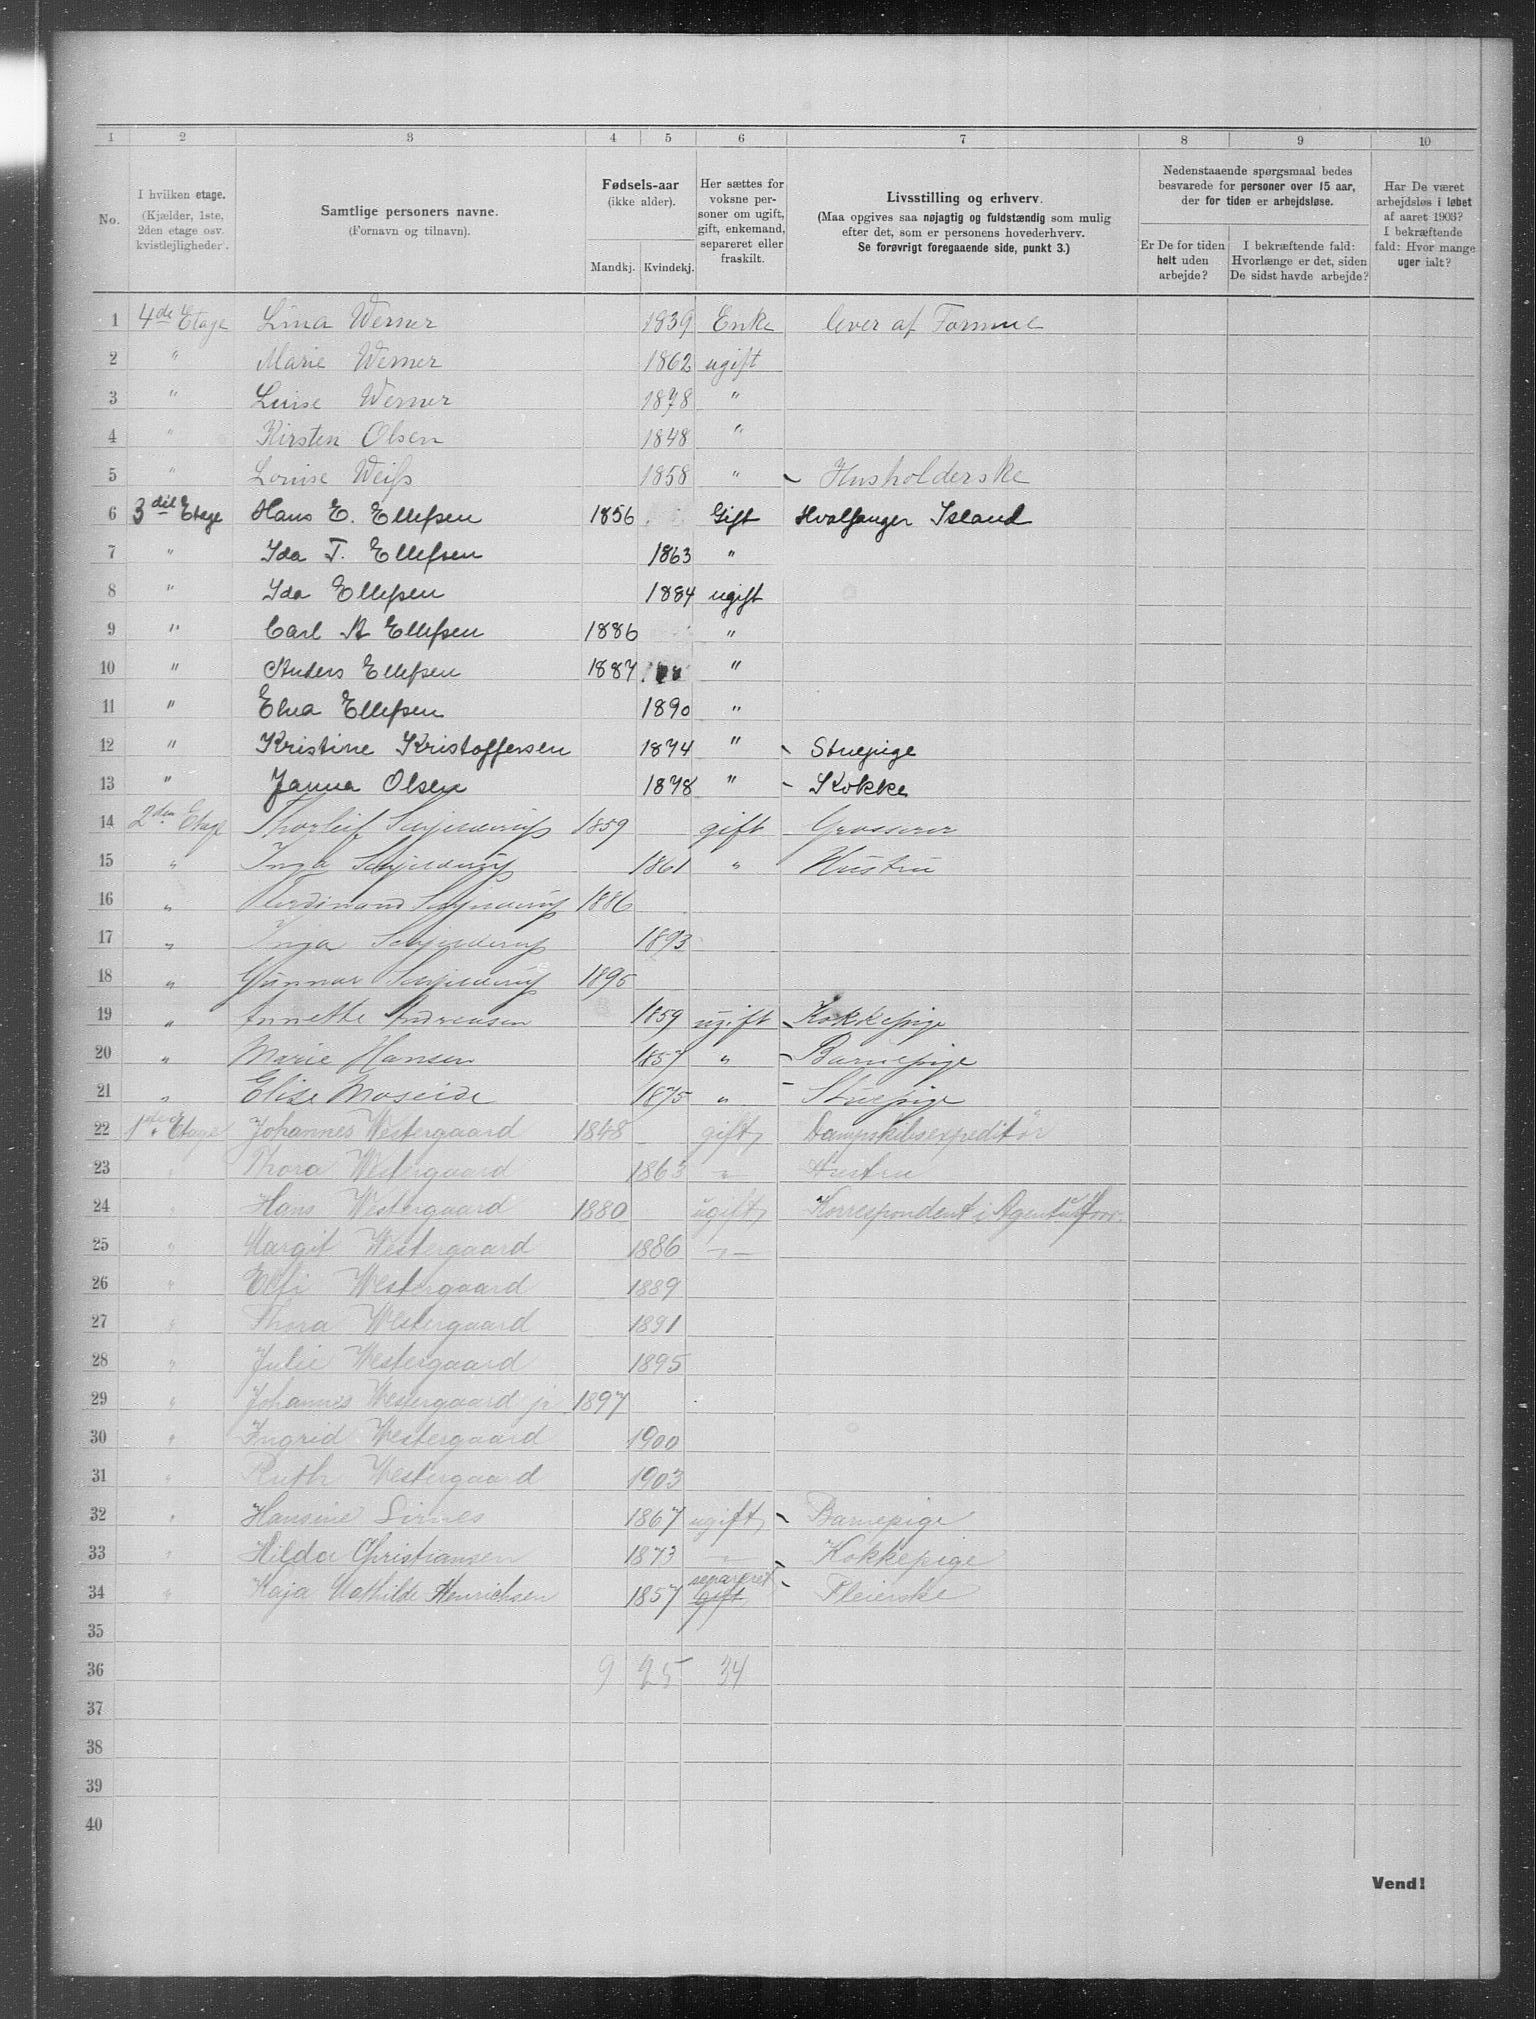 1 2 3 4 5 6 7 8 9 10
No.
I hvilken etage. (Kjælder, 1ste, 2den etage osv. kvistlejligheder).
Samtlige personers navne. (Fornavn og tilnavn).
Fødsels-aar (ikke alder). Mandkj. Kvindekj.
Her sættes for voksne personer om ugift, gift, enkemand, separeret eller fraskilt.
Livsstilling og erhverv. (Maa opgives saa nøjagtig og fuldstændig som mulig efter det, som er personens hovederhverv. Se forøvrigt foregaaende side, punkt 3.)
Nedenstaaende spørgsmaal bedes besvarede for personer over 15 aar, der for tiden er arbejdsløse.
Er De for tiden helt uden arbejde?
I bekræftende fald: Hvorlænge er det, siden De sidst havde arbejde?
Har De været arbejdsløs i løbet af aaret 1903? I bekræftende fald: Hvor mange uger ialt?
1 4de Etage Lina Werner 1839 Enke lever af Formue
2 " Marie Werner 1862 ugift
3 " Luise Werner 1878 "
4 " Kirsten Olsen 1848 "
5 " Louise Weiss 1858 " - Husholderske
6 3die Etage Hans E. Ellefsen 1856 Gift Hvalfanger Island
7 " Ida T. Ellefsen 1863 "
8 " Ida Ellefsen 1884 ugift
9 " Carl A Ellefsen 1886 "
10 " Anders Ellefsen 1887 "
11 " Elna Ellefsen 1890 "
12 " Kristine Kristoffersen 1874 " - Stuepige
13 " Janna Olsen 1878 " - Kokke
14 2den Etage Thorleif Schjelderup 1859 gift Grosserer
15 " Inga Schjelderup 1861 " Hustru
16 " Ferdinand Schjelderup 1886
17 " Inga Schjelderup 1893
18 " Gunnar Schjelderup 1895
19 " Annette Andreasen 1859 ugift - Kokkepige
20 " Marie Hansen 1857 " - Barnepige
21 " Elise Moseide 1875 " - Stuepige
22 1ste Etage Johannes Westergaard 1848 gift Dampskibsexpeditør
23 " Thora Westergaard 1863 " Hustru
24 " Hans Westergaard 1880 ugift Korrespondent i Agenturforr.
25 " Margit Westergaard 1886 -"-
26 " Elfi Westergaard 1889
27 " Thora Westergaard 1891
28 " Julie Westergaard 1895
29 " Johannes Westergaard jr 1897
30 " Ingrid Westergaard 1900
31 " Ruth Westergaard 1903
32 " Hansine Sirnes 1867 ugift - Barnepige
33 " Hilda Christiansen 1873 -"- - Kokkepige
34 " Kaja Mathilde Henrichsen 1857 separeret Gift - Pleierske
35
36 9 25 34
37
38
39
40
Vend!